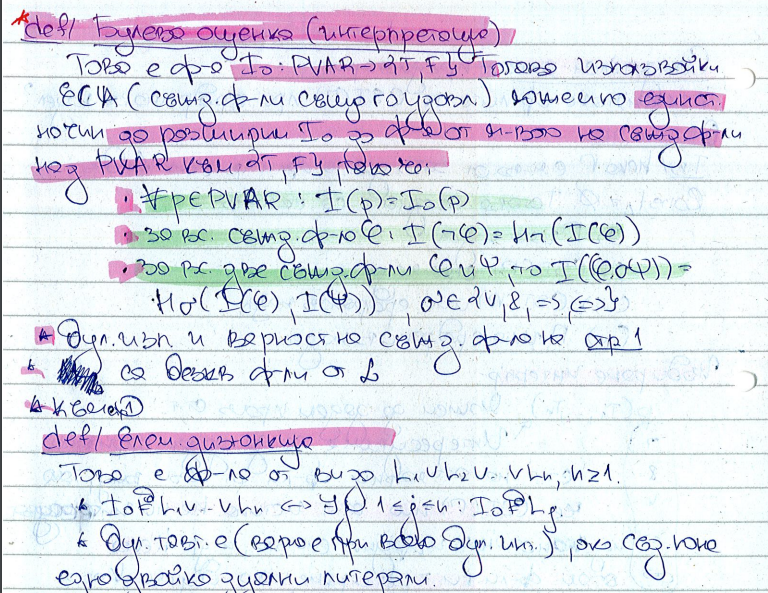 def/ Булева оценка (интерпретация)
Това е ф-я I₀: PVAR → {T, F}. Тогава използвайки
ЕСА (съжд. ф-ли съжд го удовл.) можем по единст.
начин да разширим I₀ до ф-я от м-вото на съжд ф-ли
над PVAR към {T, F}, такава че:
· ∀p∈PVAR : I(p) = I₀(p)
· за вс. съжд. ф-ла φ: I(¬φ) = H¬(I(φ))
· за вс. две съжд. ф-ли φ и ψ, то I((φσψ)) =
Hσ(I(φ), I(ψ)) , σ∈{∨, &, =>, <=>}
* Бул. изп. и верност на съжд. ф-ла на стр 1
* са безкв ф-ли от L
* ①
def/ Елем. дизюнкция
Това е ф-ла от вида L₁∨L₂∨..∨Lₙ, n≥1.
* I₀ ⊨ L₁∨..∨Lₙ <-> ∃j 1≤j≤n : I₀ ⊨ Lj.
* Бул. тавт. е (вярна е при всяка бул. инт.), ако съд. поне
една двойка дуални литерали.